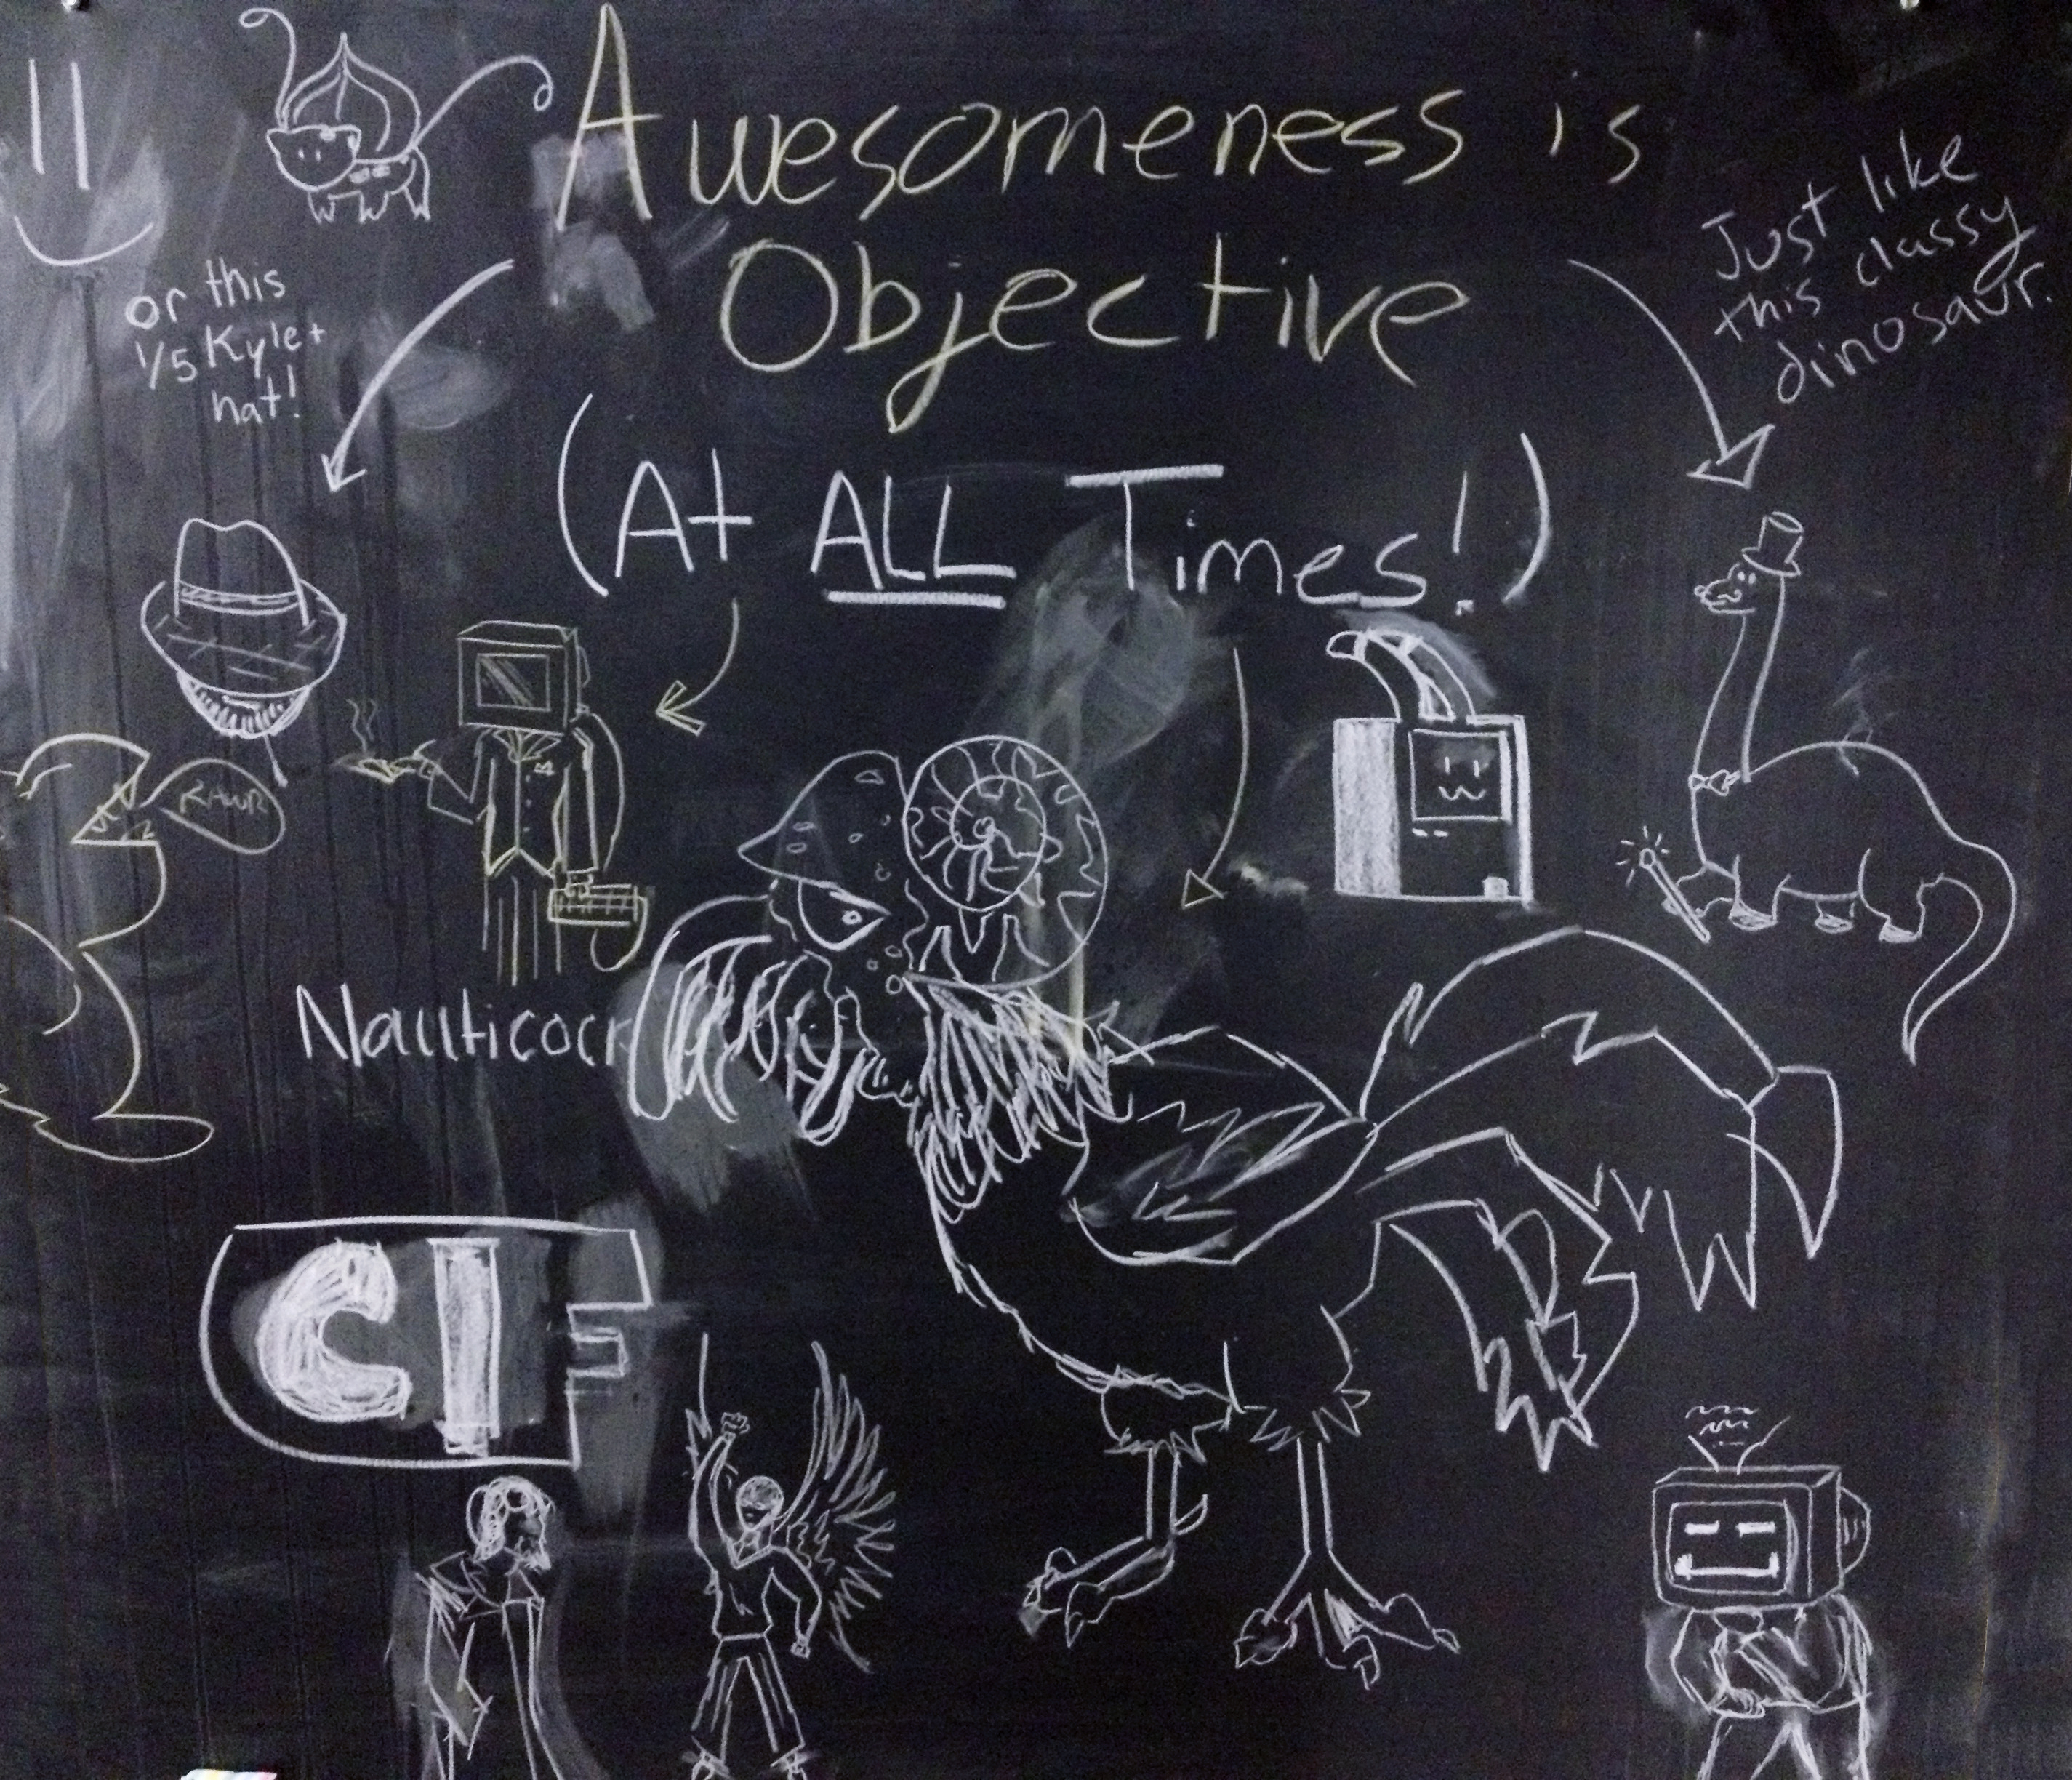 Awesomeness is
Objective
(At ALL Times!)
Just like
this classy
dinosaur.
or this
1/5 Kyle+
hat!
RAWR
CIF